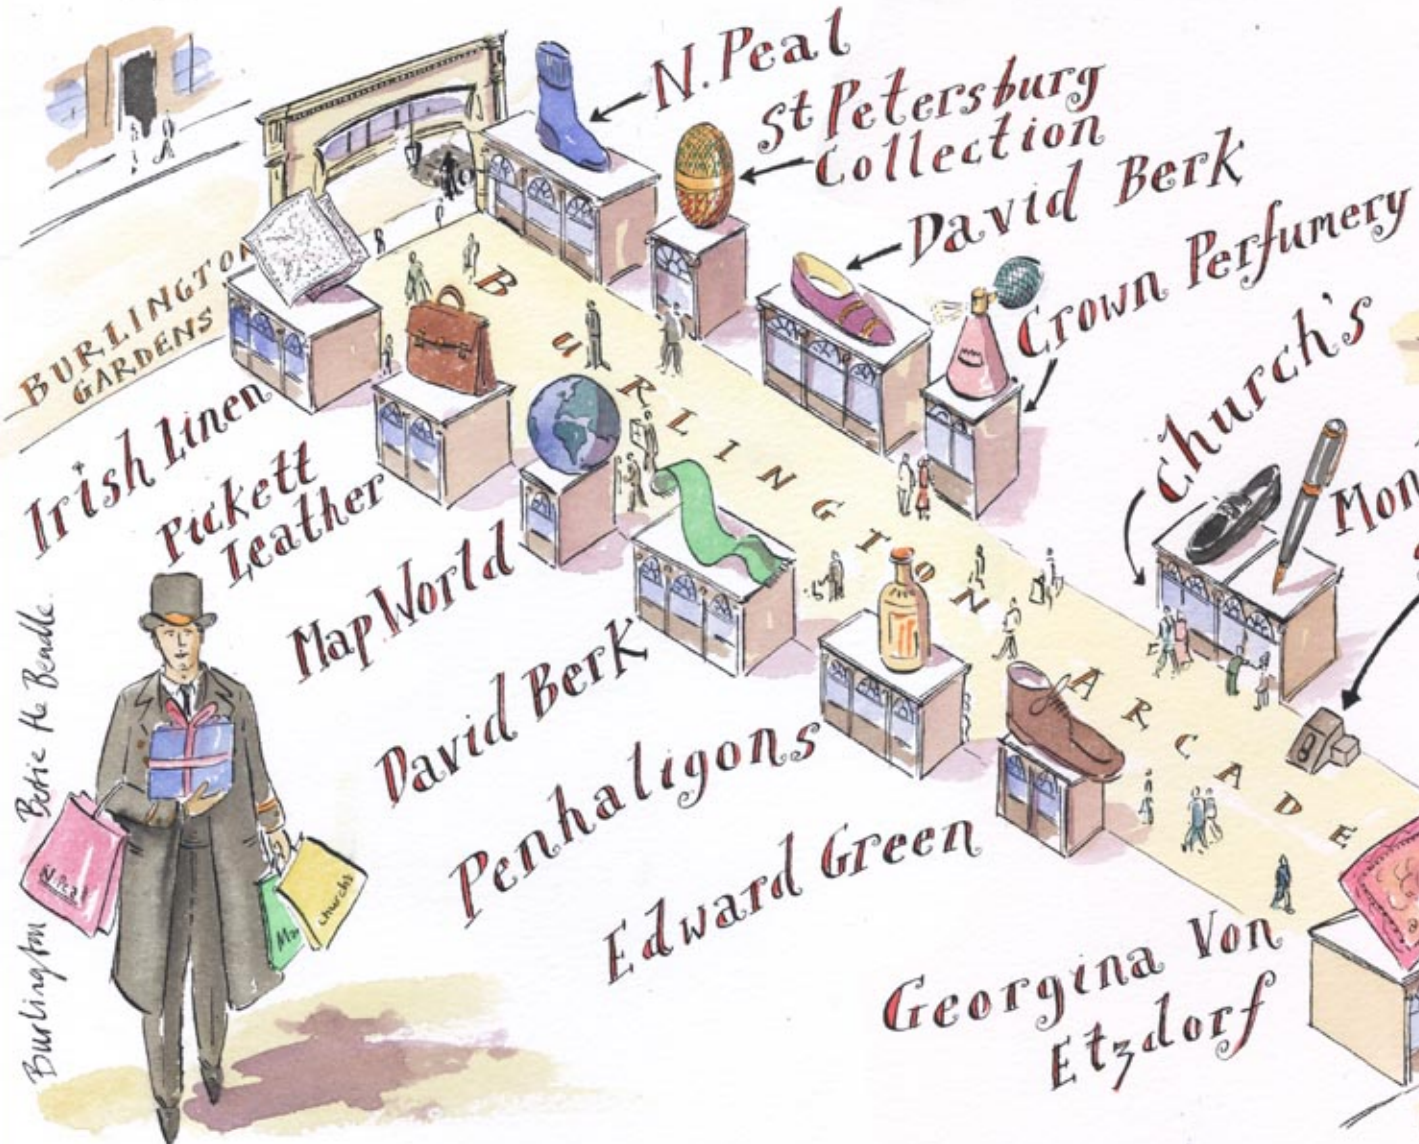 N. Peal
St Petersburg
Collection
David Berk
Crown Perfumery
Church's
Mon
BURLINGTON
GARDENS
BURLINGTON ARCADE
Irish Linen
Pickett
Leather
Map World
David Berk
Penhaligons
Edward Green
Georgina Von
Etzdorf
Burlington Bertie the Beadle.
N. Peal
Ma
Churchs